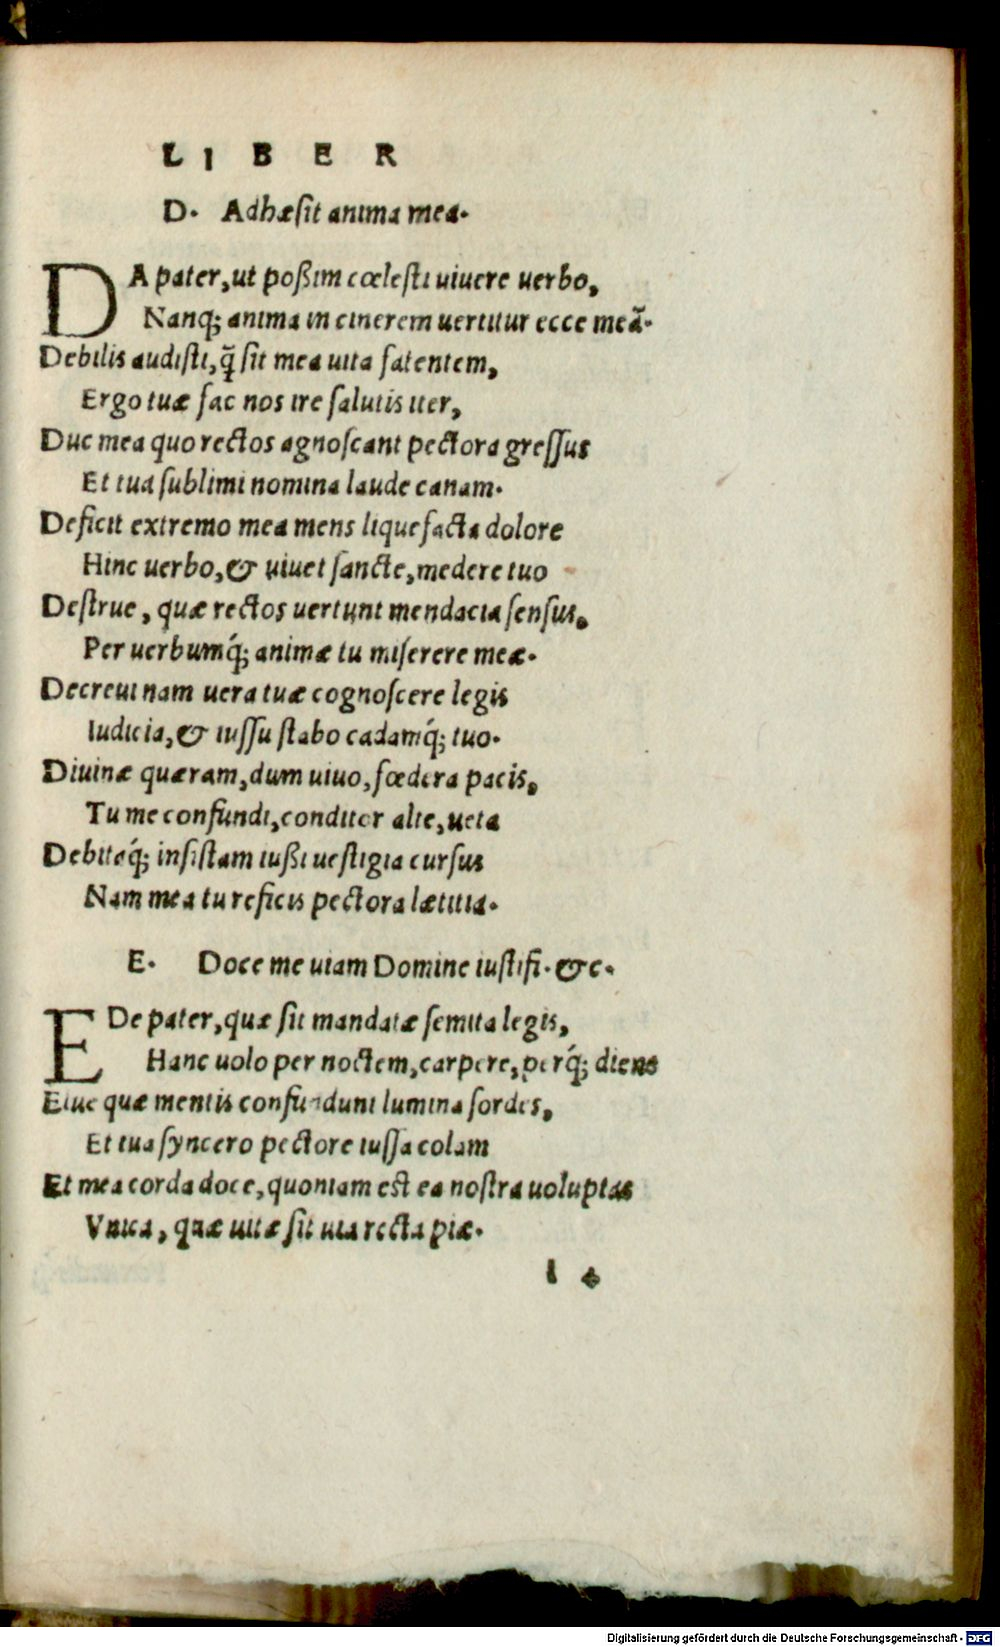 LIBER
D. Adhæsit anima mea.
DA pater, ut poßim cœlesti uiuere uerbo,
Nanq; anima in cinerem uertitur ecce meã.
Debilis audisti, q̃ sit mea uita fatentem,
Ergo tuæ fac nos ire salutis iter,
Duc mea quo rectos agnoscant pectora gressus
Et tua sublimi nomina laude canam.
Deficit extremo mea mens liquefacta dolore
Hinc uerbo, & uiuet sancte, medere tuo
Destrue, quæ rectos uertunt mendacia sensus,
Per uerbumq́; animæ tu miserere meæ.
Decreui nam uera tuæ cognoscere legis
Iudicia, & iussu stabo cadamq́; tuo.
Diuinæ quæram, dum uiuo, fœdera pacis,
Tu me confundi, conditor alte, ueta
Debitaq́; insistam iußi uestigia cursus
Nam mea tu reficis pectora lætitia.
E. Doce me uiam Domine iustifi. &c.
EDe pater, quæ sit mandatæ semita legis,
Hanc uolo per noctem, carpere, perq́; diem
Elue quæ mentis confundunt lumina sordes,
Et tua syncero pectore iussa colam
Et mea corda doce, quoniam est ea nostra uoluptas
Vnica, quæ uitæ sit uia recta piæ.
I 4
Digitalisierung gefördert durch die Deutsche Forschungsgemeinschaft - DFG